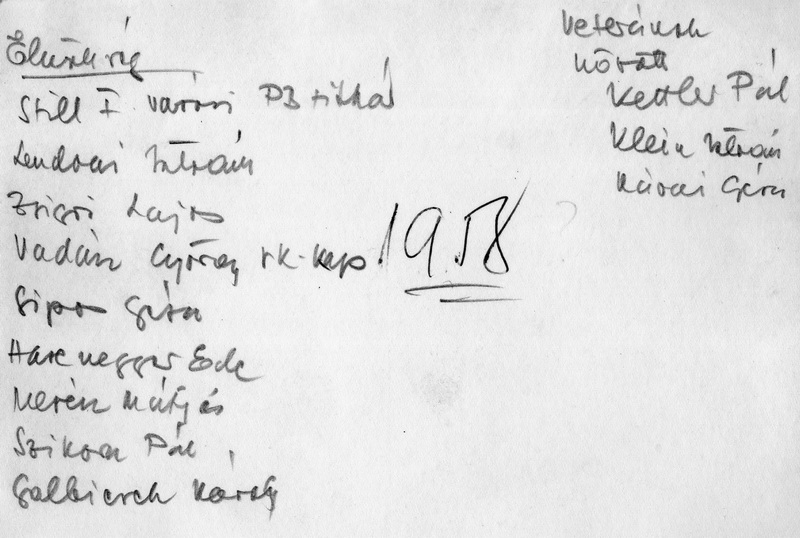 Elnökség
Still I városi PB titkár
Lendvai István
Zsigri Lajos
Vadász György rk. kap.
1958
Sipos Géza
Harenegger Ede
Merész Mátyás
Szikora Pál
Galbicsek Károly
Veteránok
között
Kettler Pál
Klein István
Kárai Géza